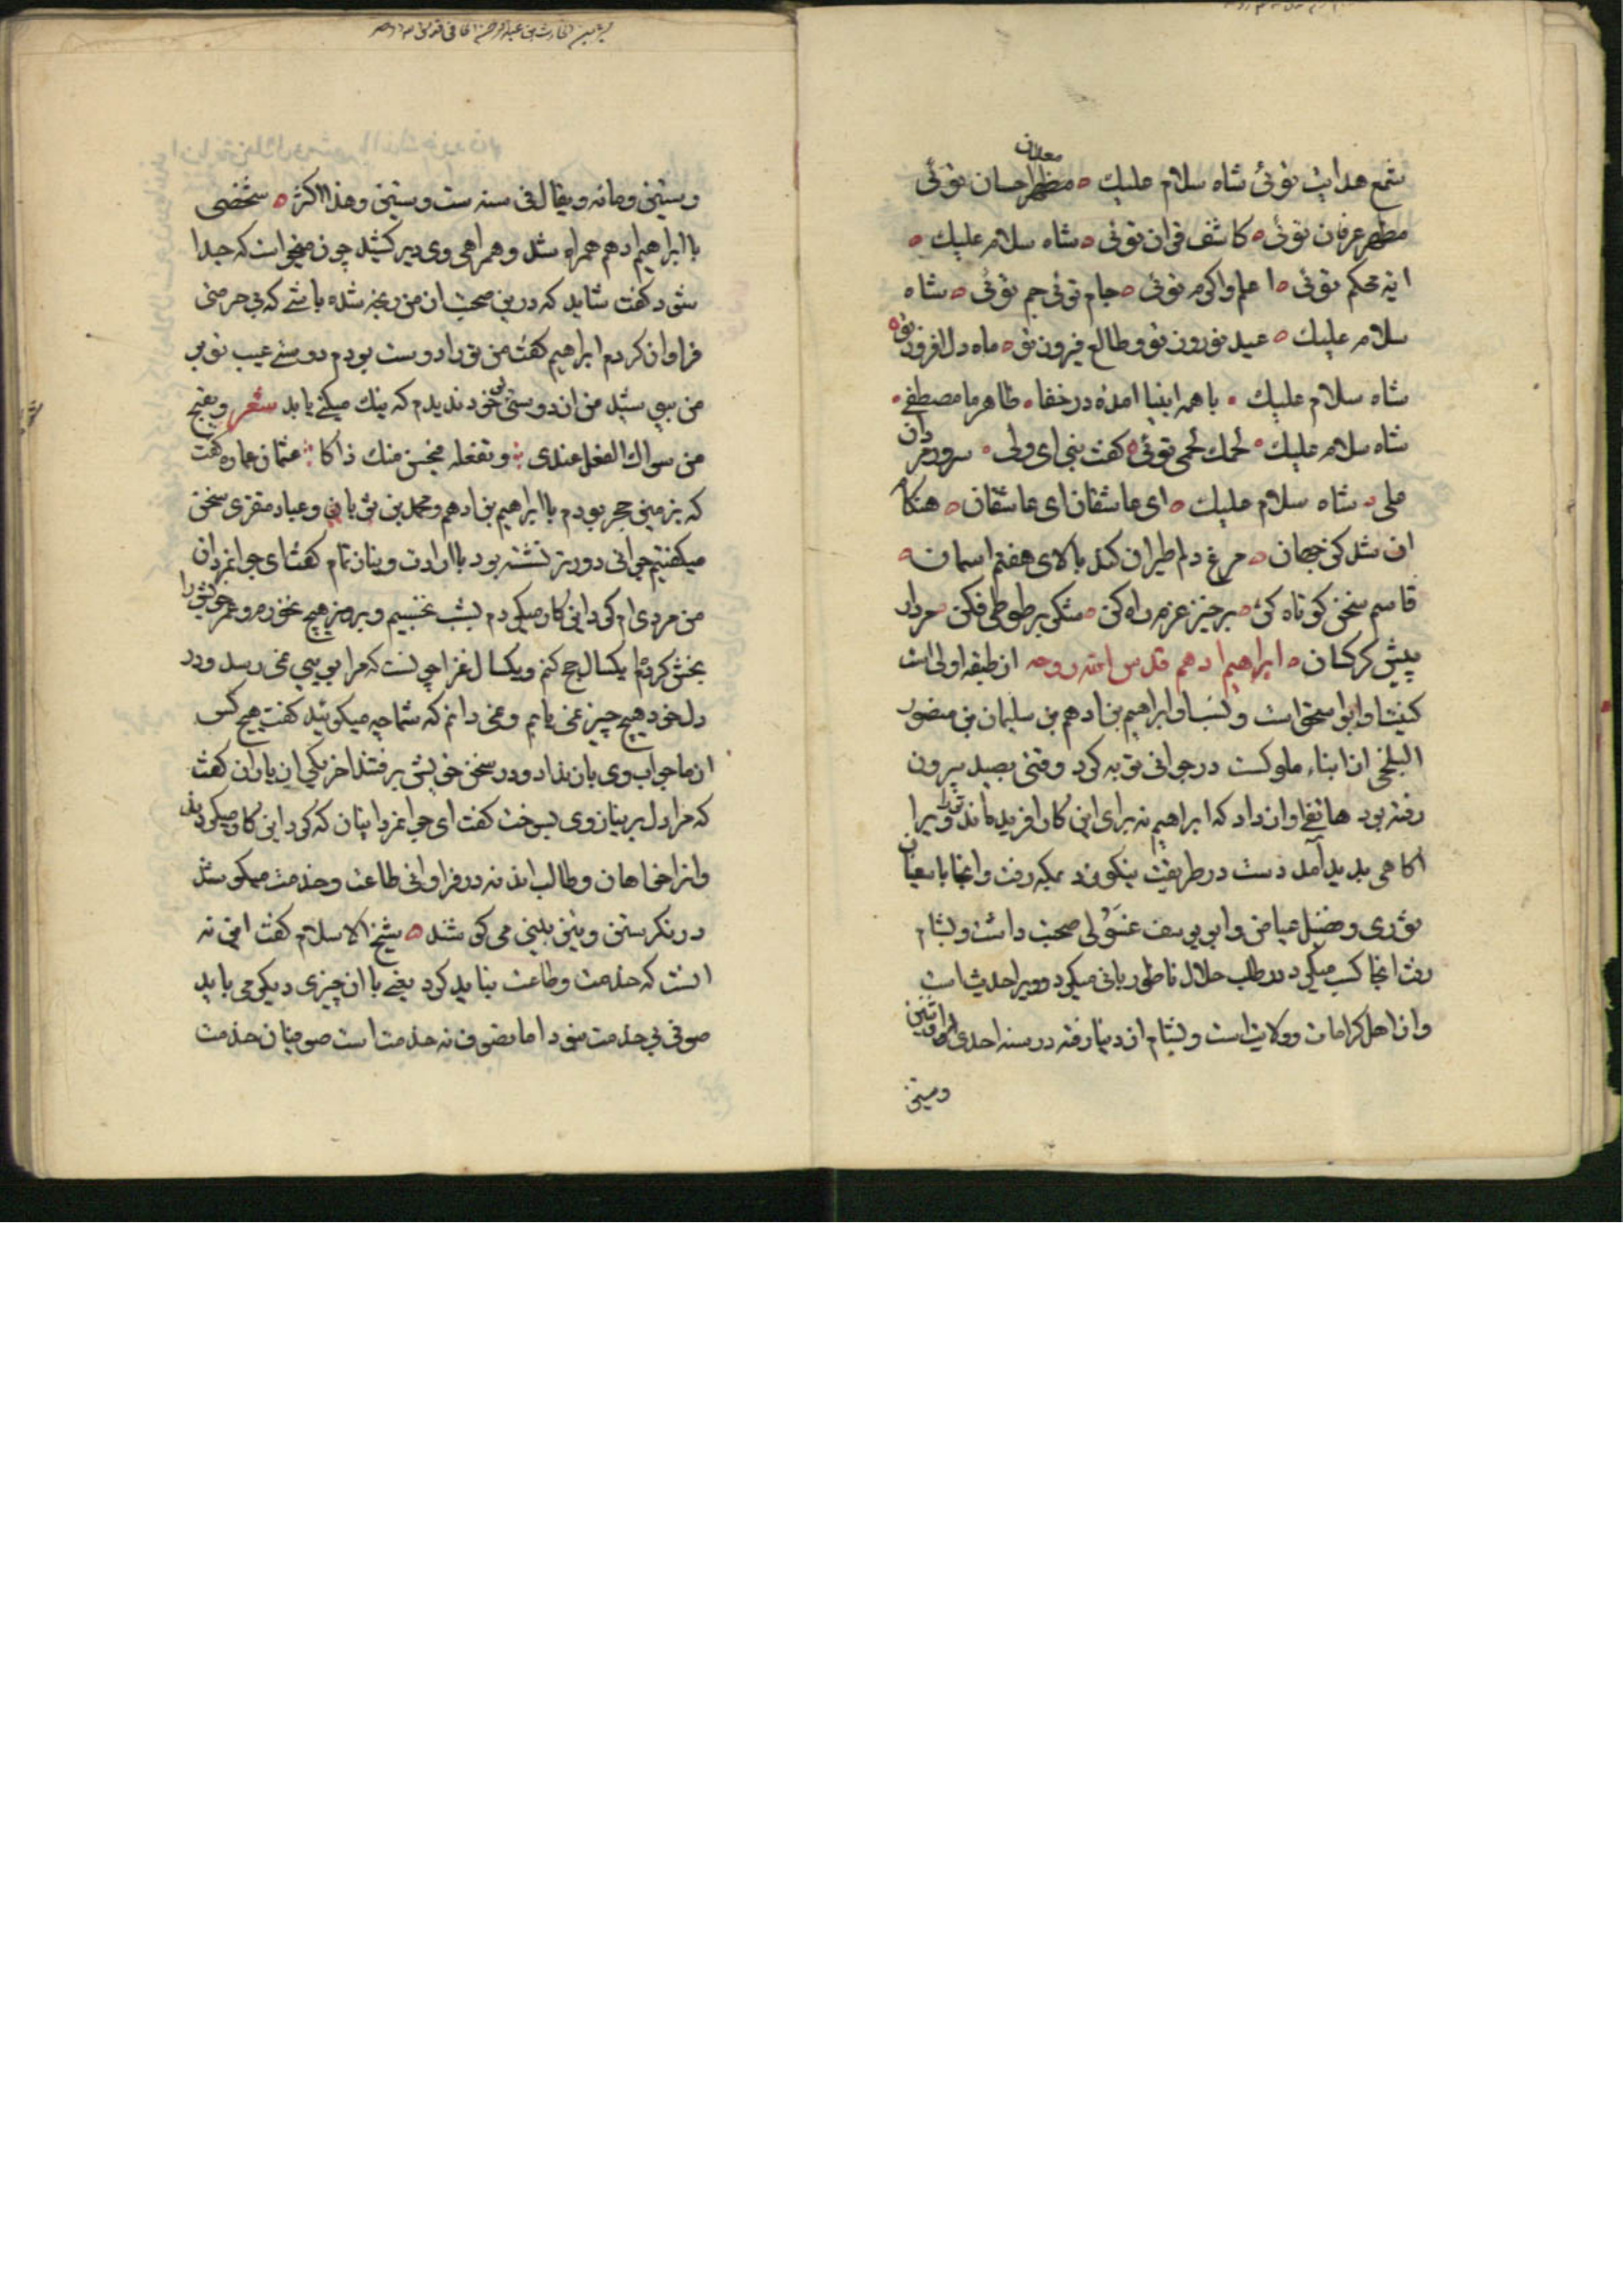 شمع هدایت توئی شاه سلام علیك ه مظهر احسان توئی
معدن
مظهر عرفان توئی ه کاشف قران توئی ه شاه سلام علیك ه
ایه محکم توئی ه اعلم واکرم توئی ه جام توئی جم توئی ه شاه
سلام علیك ه عید تو روز تو وطالع فیروز تو ه ماه دل افروز تو ه
شاه سلام علیك ه با همه انبیا امده در خفا ه ظاهر با مصطفی ه
شاه سلام علیك ه لحمك لحمی توئی ه کفت نبی ای ولی ه سرور مردان
علی ه شاه سلام علیك ه ای عاشقان ای عاشقان ه هنکام
ان شد کز جهان ه مرغ دلم طیران کند بالای هفتم اسمان ه
قاسم سخن کوتاه کن ه برخیز عزم راه کن ه شکر بر طوطی فکن مردار
پیش کرکسان ه ابراهیم ادهم قدس الله روحه از طبقه اولی است
کنیت او ابو اسحق است ونسب او ابراهیم بن ادهم بن سلیمان بن منصور
البلخی از ابناء ملوکست در جوانی توبه کرد وقتی بصید بیرون
رفته بود هاتفی اواز داد که ابراهیم نه برای این کار افریده اند ترا ویرا
اکاهی پدید آمد دست در طریقت نیکو زد بمکه رفت وانجا با سفیان
ثوری وفضیل عیاض وابو یوسف غسولی صحبت داشت وبشام
رفت انجا کسب میکرد در طلب حلال ناطوربانی میکرد وویرا حدیث است
واز اهل کرامات وولایت است وبشام از دنیا رفته در سنه احدی او اثنین
وستین
وستین ومائه ویقال فی سنه ست وستین وهذا اکثر ه شخصی
با ابراهیم ادهم همراه شد وهمراهی وی دیر کشید چون میخواست که جدا
شود کفت شاید که درین صحبت از من رنجه شده باشی که بی حرمتی
فراوان کردم ابراهیم کفت من تو را دوست بودم دوستی عیب تو بر
من بپوشید من از دوستی تو خود ندیدم که نیك میکنی یا بد شعر ویقبح
من سواك الفعل عندی ؞ وتفعله فیحسن منك ذاکا ؞ عثمان عماره کفت
که بزمین حجر بودم با ابراهیم بن ادهم ومحمد بن ثوبان وعباد منقری سخن
میکفتیم جوانی دورتر نشسته بود با ارادت ونیاز تام کفت ای جوانمردان
من مردی ام کرد این کار میکردم بشب نخسپم وبروز هیچ نخورم وعمر خویش را
بخش کرده ام یکسال حج کنم ویکسال غزا چونست که مرا بویی نمی رسد ودر
دل خود هیچ چیز نمی یابم ونمی دانم که شما چه میکوئید کفت هیچ کس
از ما جواب وی باز نداد ودر سخن خویش برفتند اخر یکی از یاران کفت
که مرا دل بر نیاز وی بسوخت کفت ای جوانمرد اینان که کرد این کار میکردند
واز خواهان وطالب اند نه در فراوانی طاعت وخدمت میکوشند
در نکرستن وتیز بینی می کوشند ه شیخ الاسلام کفت این نه
انست که خدمت وطاعت نباید کرد یعنی با ان چیزی دیکر می باید
صوفی بی خدمت نبود اما تصوف نه خدمت است صوفیان خدمت